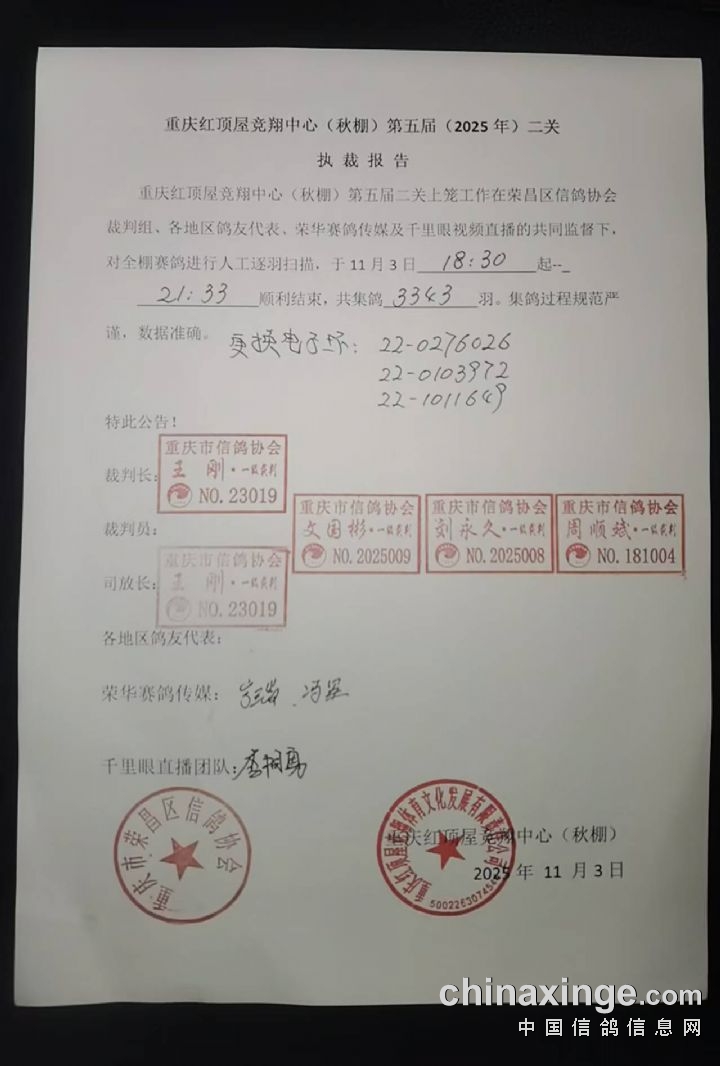 重庆红顶屋竞翔中心（秋棚）第五届（2025年）二关
执 裁 报 告
重庆红顶屋竞翔中心（秋棚）第五届二关上笼工作在荣昌区信鸽协会
裁判组、各地区鸽友代表、荣华赛鸽传媒及千里眼视频直播的共同监督下，
对全棚赛鸽进行人工逐羽扫描，于11月3日 18:30 起--
21:33 顺利结束，共集鸽 3343 羽。集鸽过程规范严
谨，数据准确。更换电子环： 22-0276026
22-0103972
22-1011649
特此公告！
裁判长：
重庆市信鸽协会
王 刚·一级裁判
NO.23019
裁判员：
重庆市信鸽协会
文国彬·一级裁判
NO.2025009
重庆市信鸽协会
刘永久·一级裁判
NO.2025008
重庆市信鸽协会
周顺斌·一级裁判
NO.181004
司放长：
重庆市信鸽协会
王 刚·一级裁判
NO.23019
各地区鸽友代表：
荣华赛鸽传媒：
千里眼直播团队：
重庆市荣昌区信鸽协会
重庆红顶屋体育文化发展有限责任公司
重庆红顶屋竞翔中心（秋棚）
2025年 11 月 3 日
chinaxinge.com
中国信鸽信息网